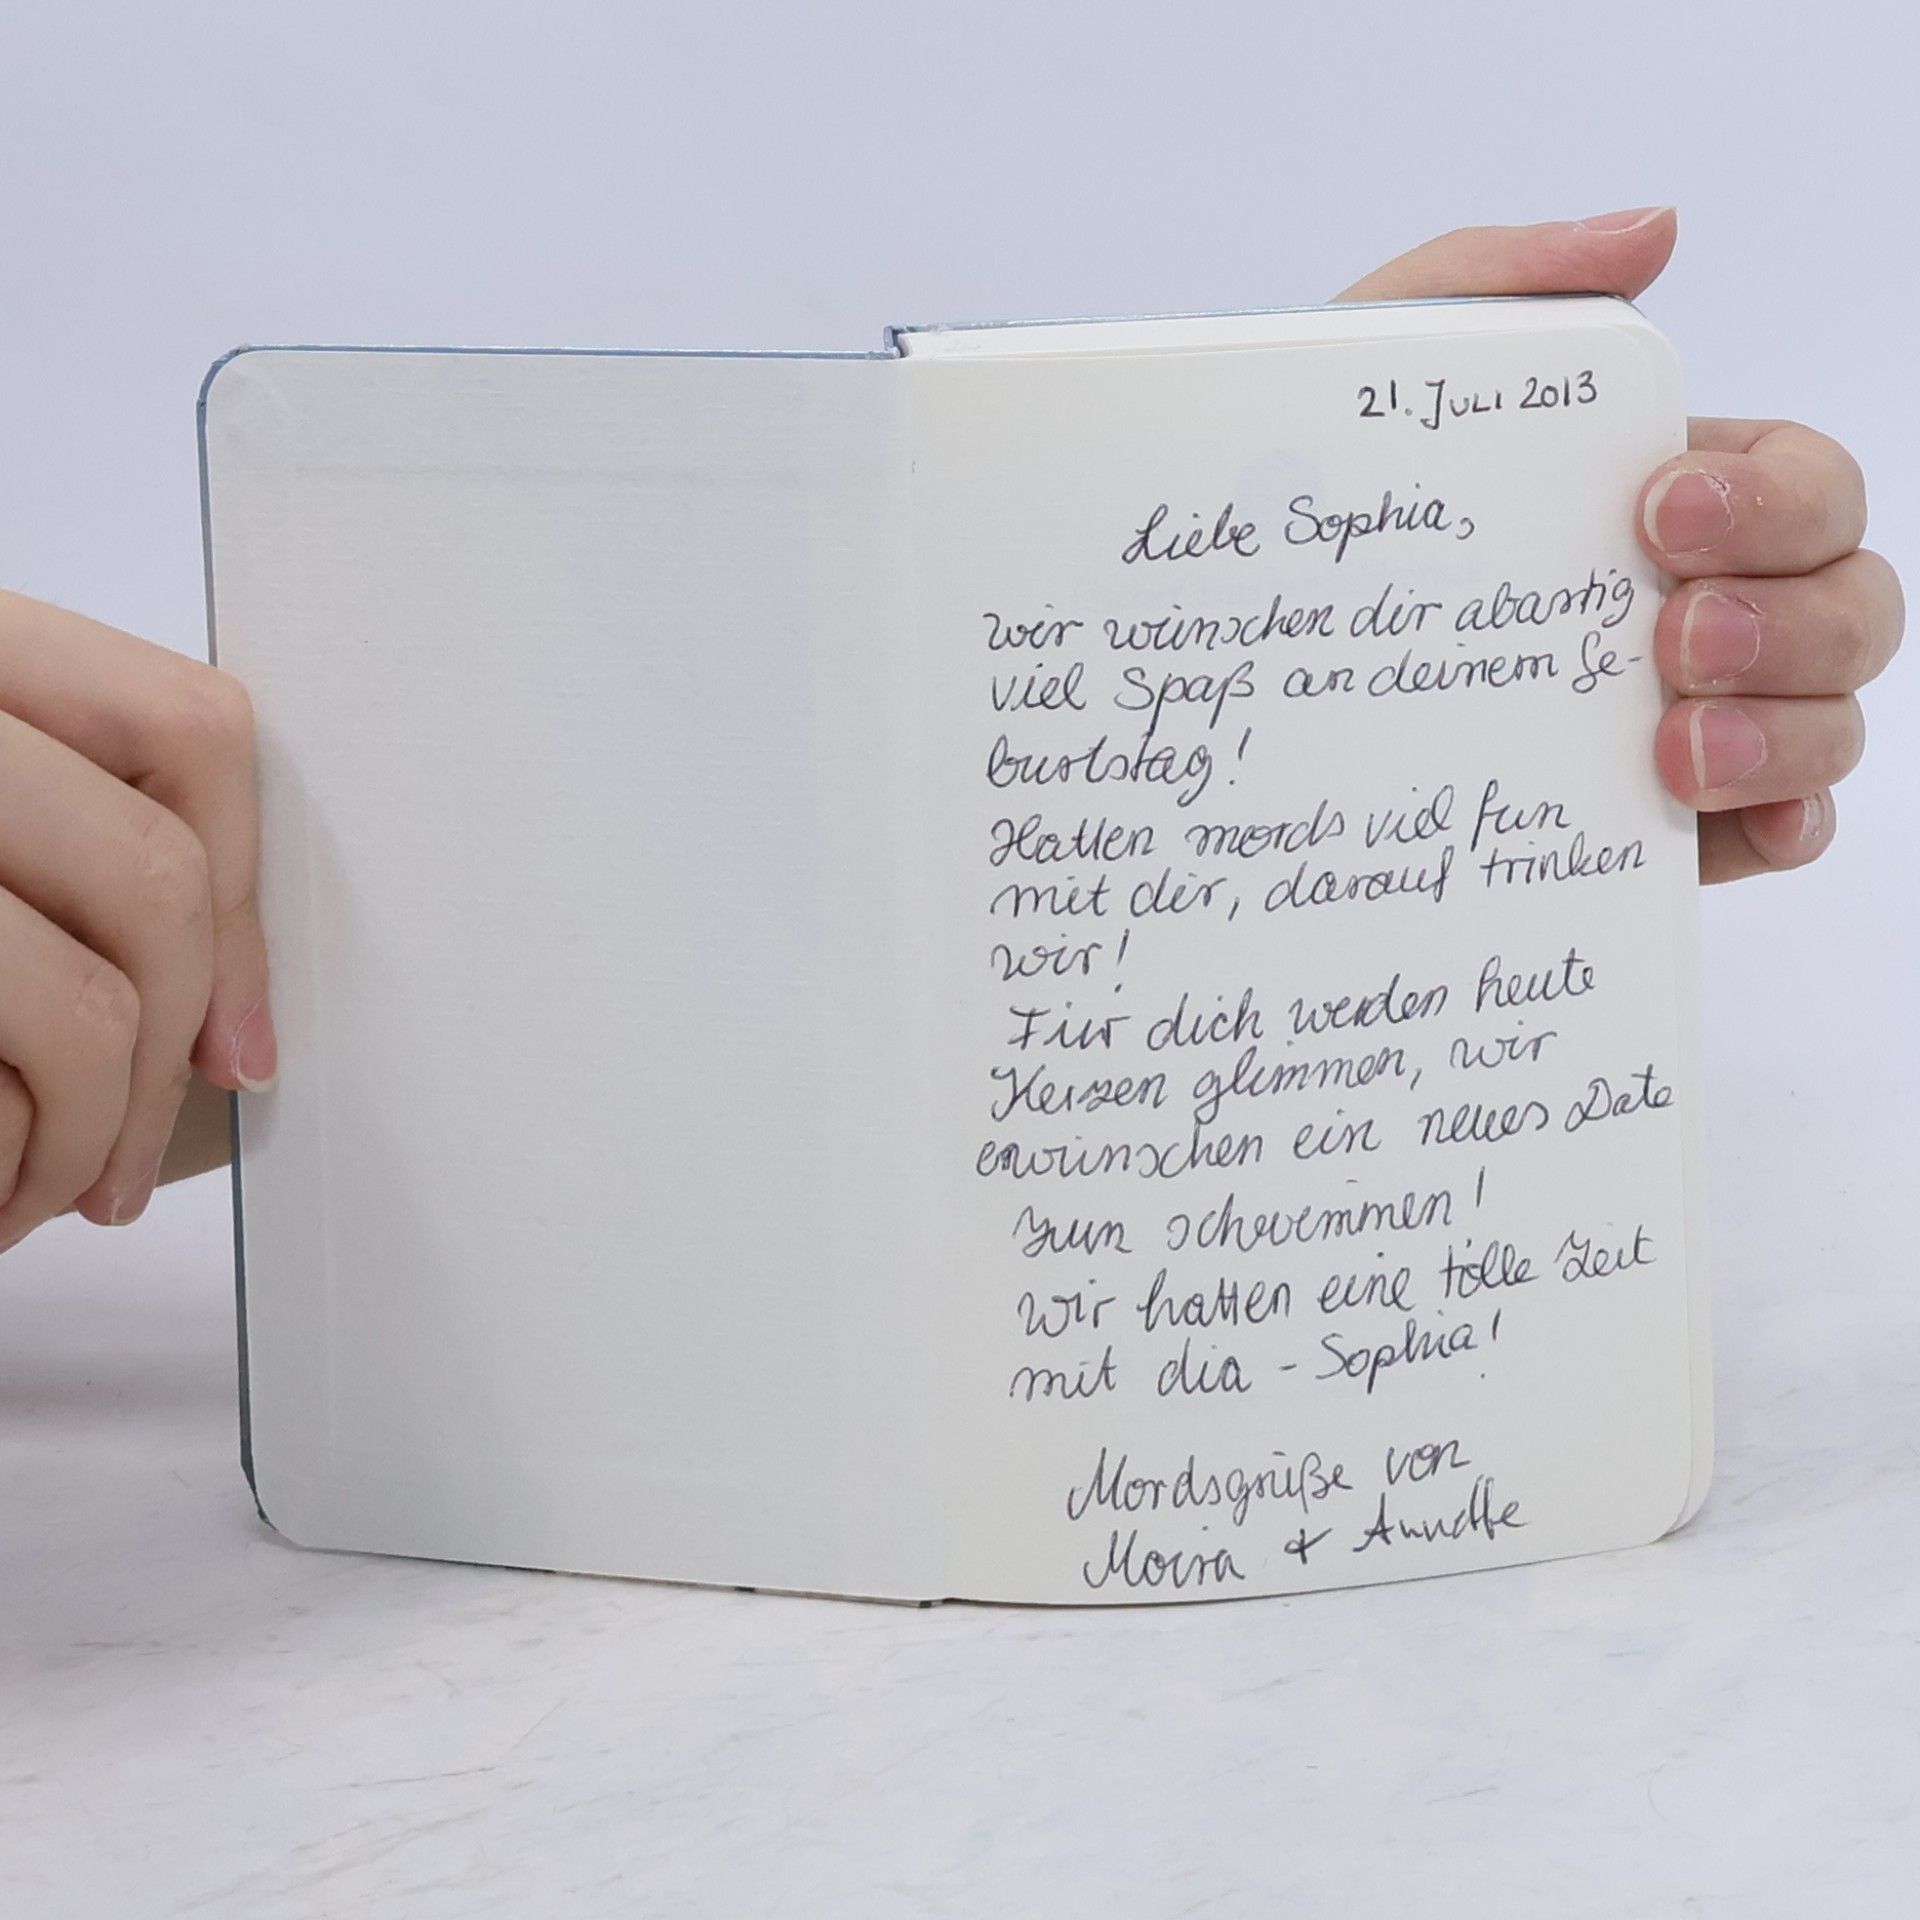 21. JULI 2013
Liebe Sophia,
wir wünschen dir abartig
viel Spaß an deinem Ge-
burtstag!
Hatten mords viel fun
mit dir, darauf trinken
wir!
Für dich werden heute
Kerzen glimmen, wir
erwünschen ein neues Date
zum schwimmen!
wir hatten eine tolle Zeit
mit dia - Sophia!
Mordsgrüße von
Moira & Annette